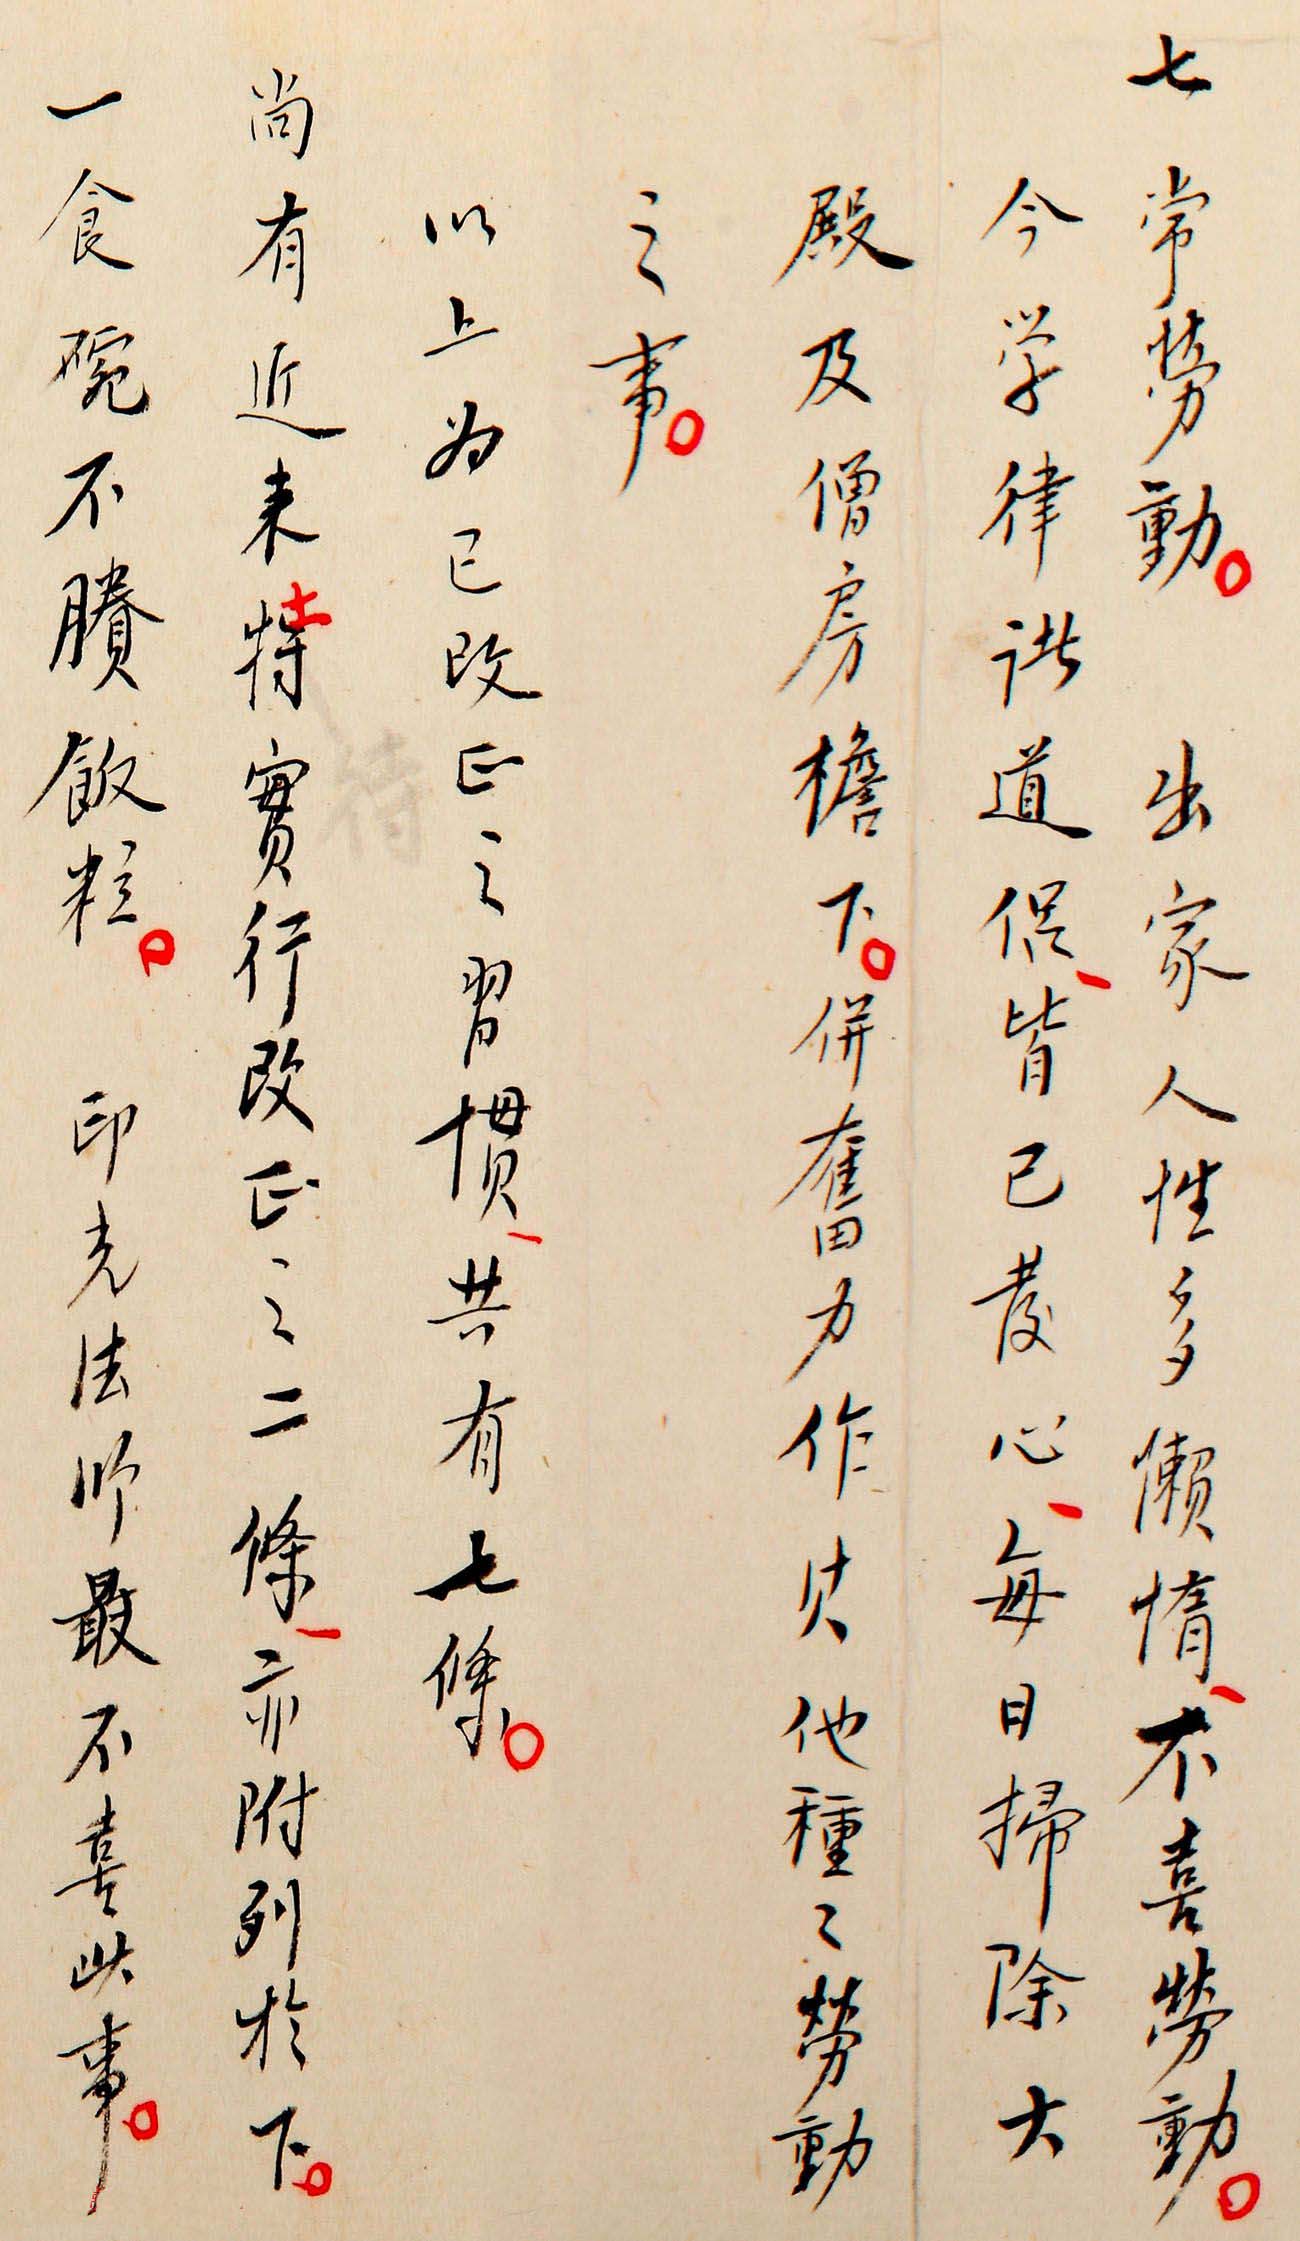 七 常勞動。 出家人性多懶惰、不喜勞動。
今学律諸道侶、皆已發心、每日掃除大
殿及僧房檐下。併奮力作其他種〻勞動
之事。
以上为已改正之習慣、共有七條。
尚有近来特實行改正之二條、亦附列於下。
待
一食碗不賸飯粒。 印光法师最不喜此事。